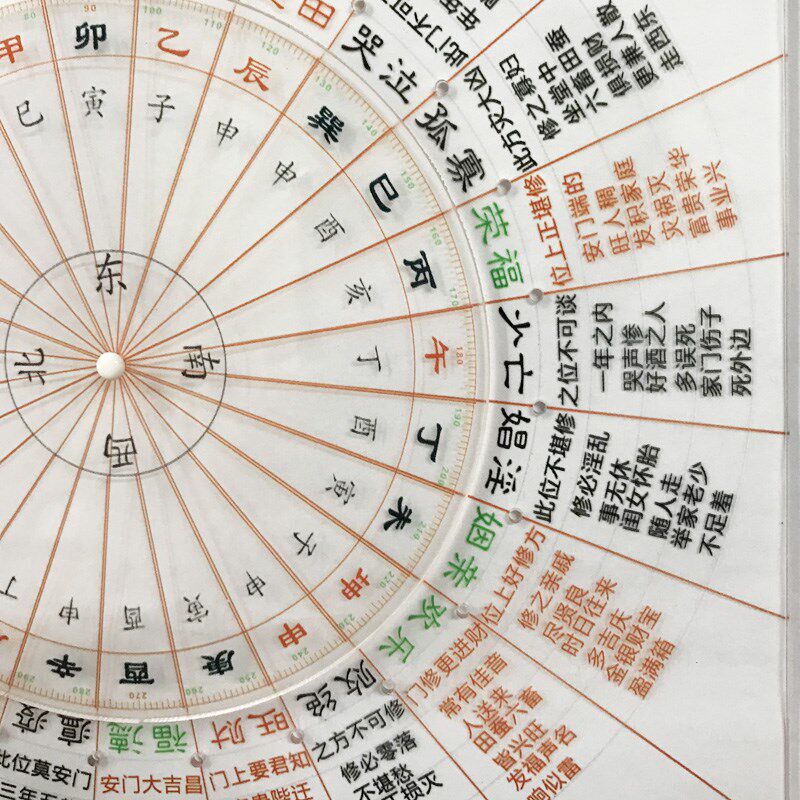 东
南
西
北
甲
卯
乙
辰
巽
巳
丙
午
丁
未
坤
申
庚
酉
辛
巳
寅
子
申
申
酉
亥
丁
酉
寅
子
申
寅
酉
申
丁
80
90
100
110
120
130
140
150
160
170
180
190
200
210
220
230
240
250
260
270
280
290
田
此门不可
年年
哭泣
此方灾大凶
修之寡妇
坐堂中
六畜田蚕
俱损财
更兼人散
走四乐
孤寡
荣福
位上正堪修
安门端的
旺人稠
发积家庭
灾祸灭
富贵荣华
事业兴
少亡
之位不可谈
一年之内
哭声惨
好酒之人
多误死
家门伤子
死外边
娼淫
此位不堪修
修必淫乱
事无休
闺女怀胎
随人走
举家老少
不足羞
姻亲
位上好修方
修之亲戚
尽贤良
时日往来
多吉庆
金银财宝
盈满箱
欢乐
门修更进财
常有佳音
人送来
田蚕六畜
皆兴旺
发福声名
响似雷
败绝
之方不可修
修必零落
不堪愁
损灭
旺财
门上要君知
福德
安门大吉昌
瘟疫
此位莫安门
三年五